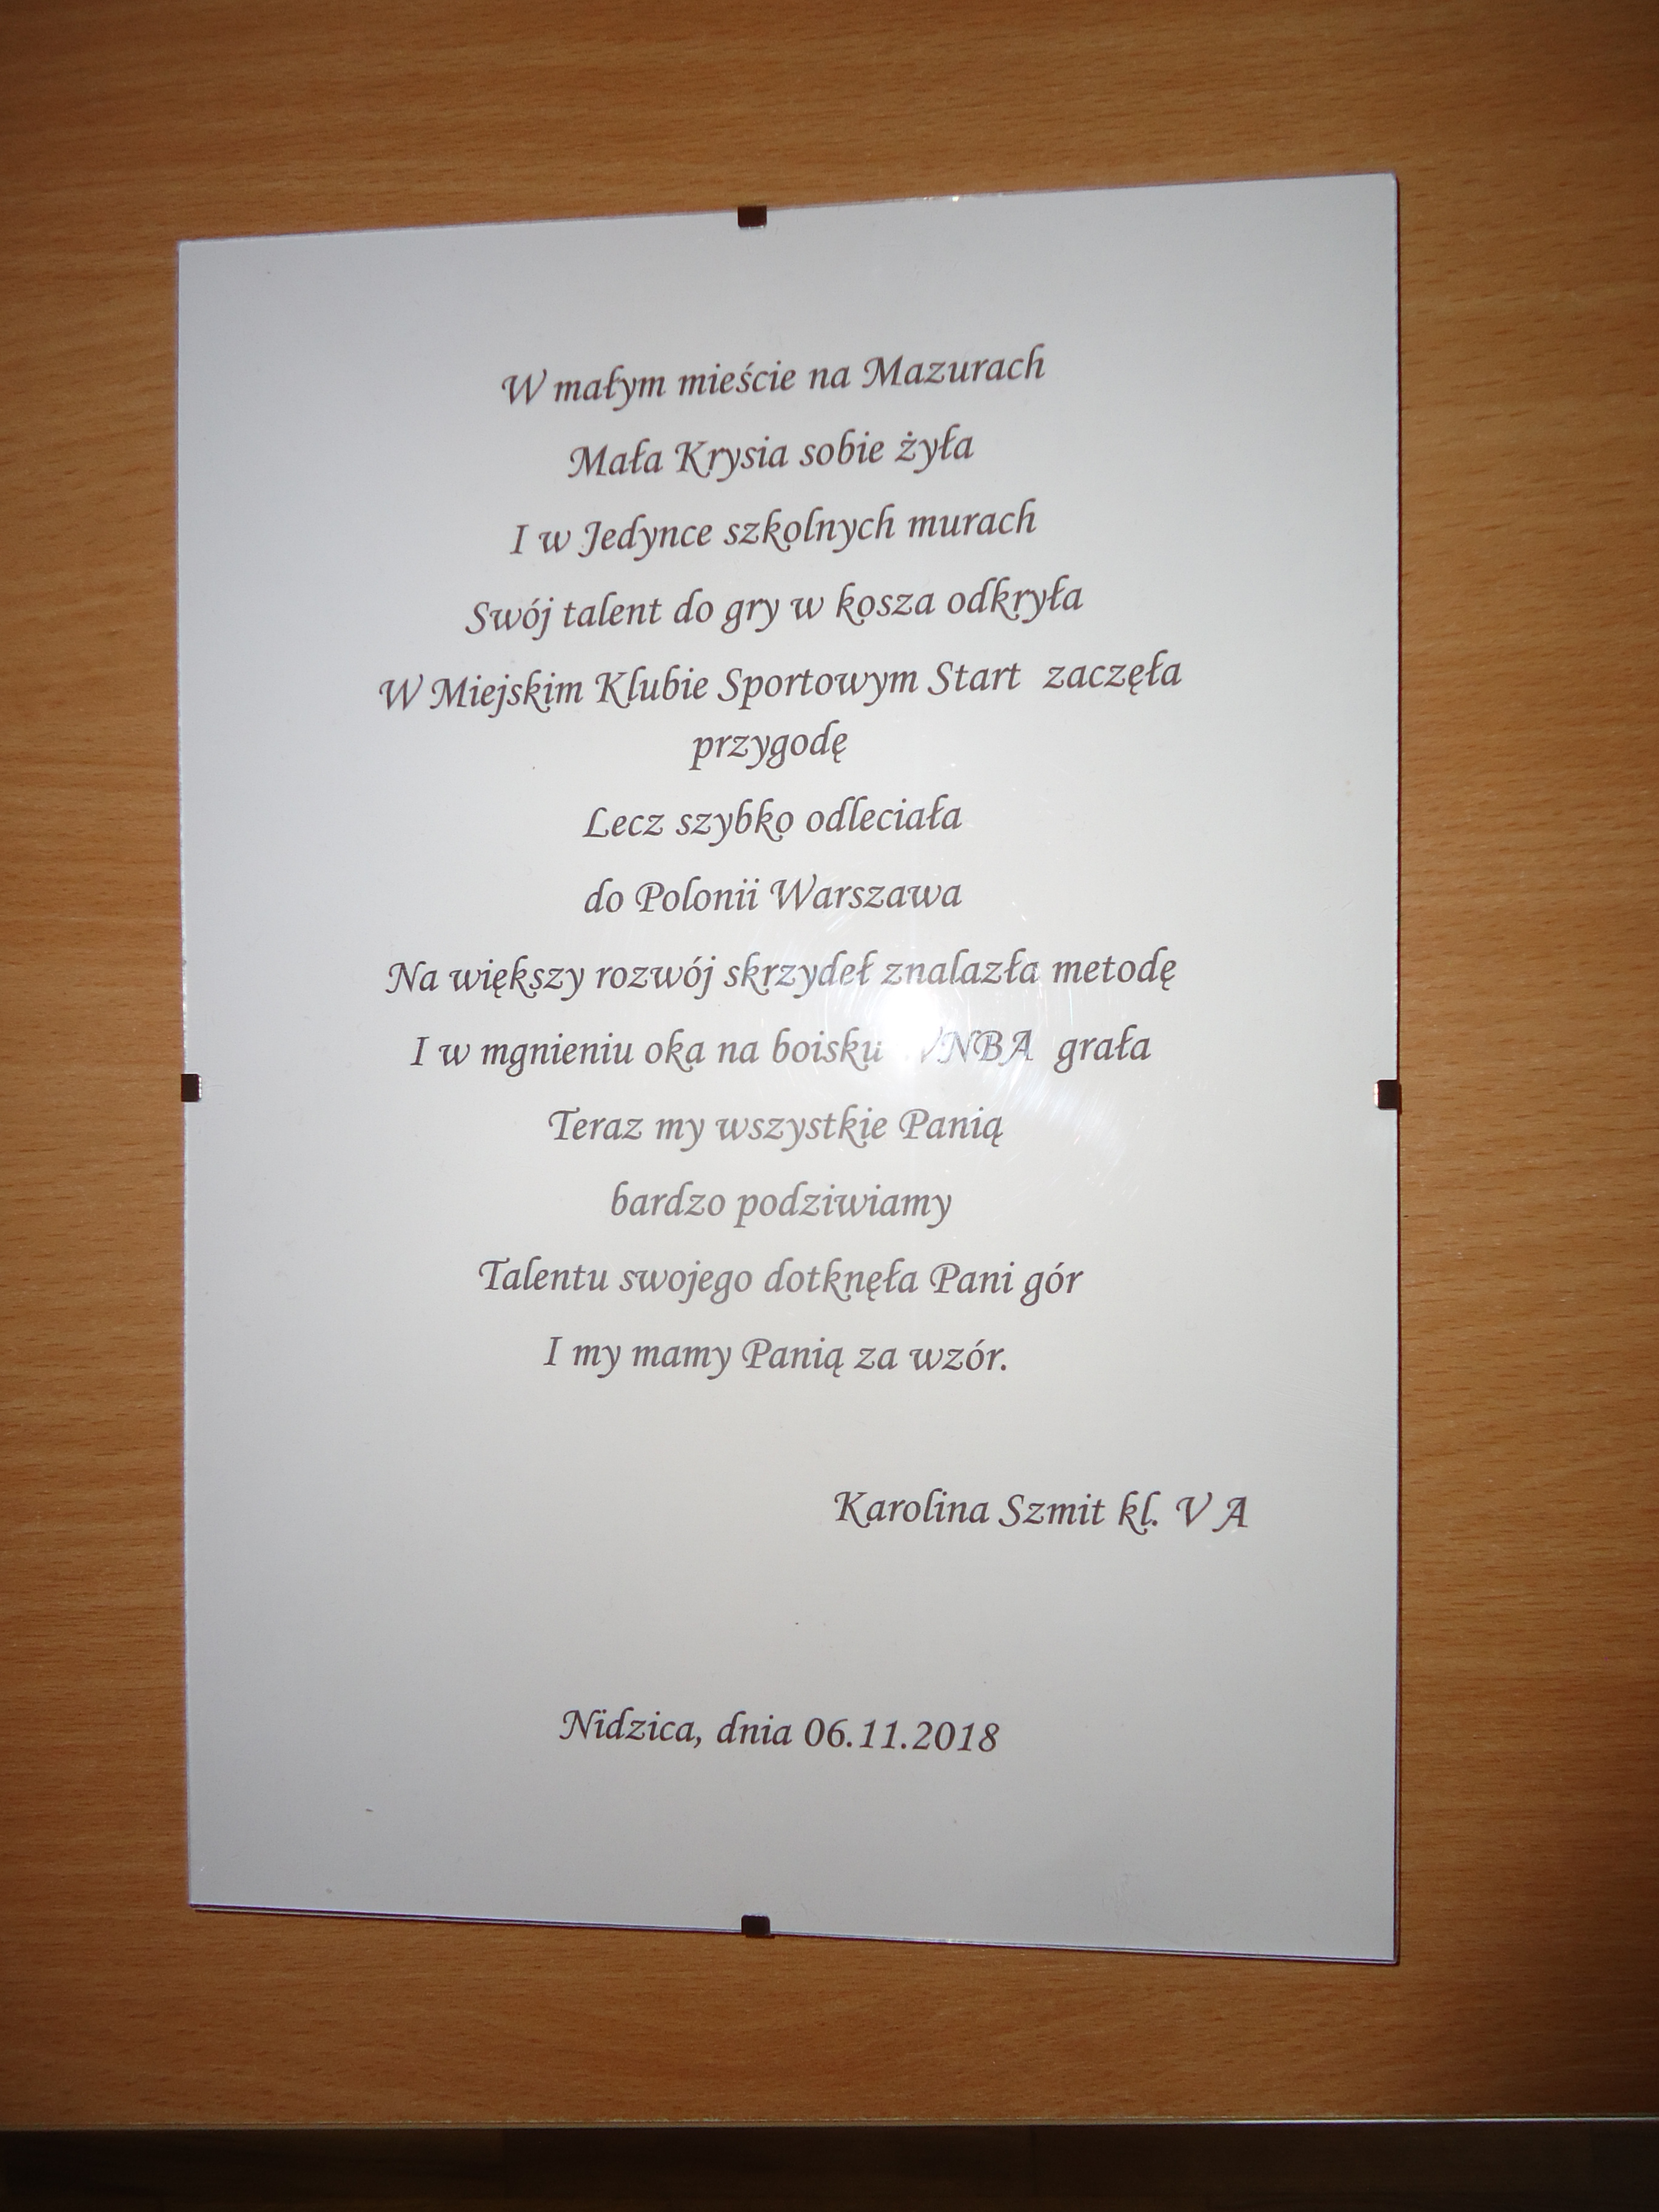 W małym mieście na Mazurach
Mała Krysia sobie żyła
I w Jedynce szkolnych murach
Swój talent do gry w kosza odkryła
W Miejskim Klubie Sportowym Start zaczęła
przygodę
Lecz szybko odleciała
do Polonii Warszawa
Na większy rozwój skrzydeł znalazła metodę
I w mgnieniu oka na boisku WNBA grała
Teraz my wszystkie Panią
bardzo podziwiamy
Talentu swojego dotknęła Pani gór
I my mamy Panią za wzór.
Karolina Szmit kl. V A
Nidzica, dnia 06.11.2018